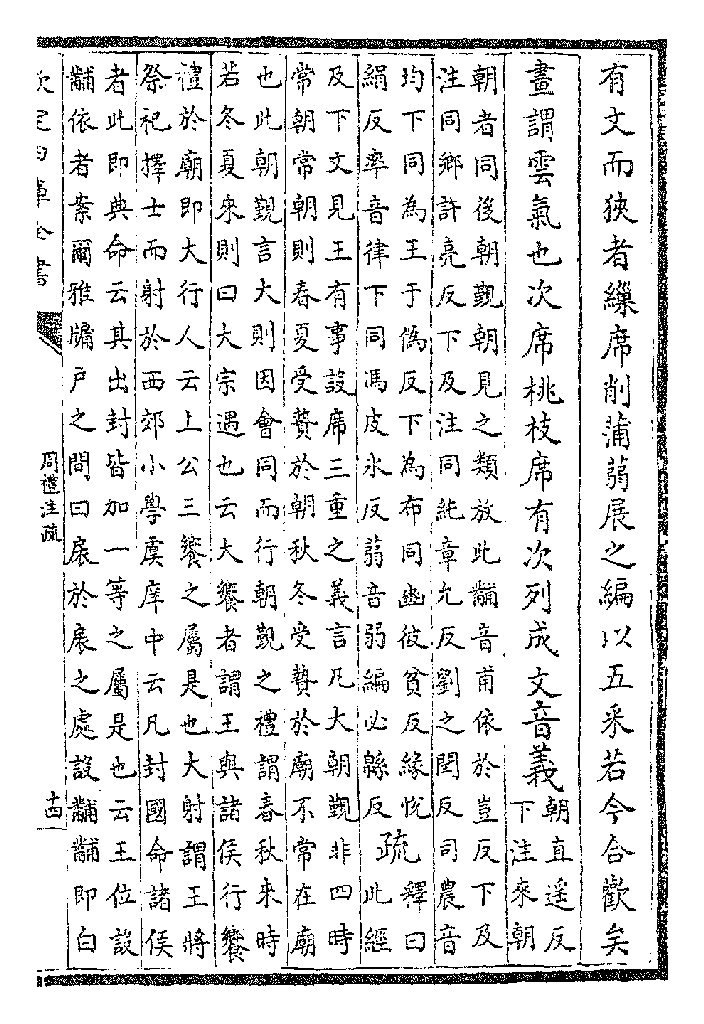 有文而狹者繅席削蒲蒻展之編以五采若今合歡矣
畫謂雲氣也次席桃枝席有次列成文音義
朝直遥反
下注來朝
朝者同後朝覲朝見之類放此黼音甫依於豈反下及
注同鄉許亮反下及注同純章允反劉之閏反司農音
均下同為王于偽反下為布同豳彼貧反緣悅
絹反率音律下同馮皮氷反蒻音弱編必緜反
疏
釋曰
此經
及下文見王有事設席三重之義言凡大朝覲非四時
常朝常朝則春夏受贄於朝秋冬受贄於廟不常在廟
也此朝覲言大則因會同而行朝覲之禮謂春秋來時
若冬夏來則曰大宗遇也云大饗者謂王與諸侯行饗
禮於廟即大行人云上公三饗之屬是也大射謂王將
祭祀擇士而射於西郊小學虞庠中云凡封國命諸侯
者此即典命云其出封皆加一等之屬是也云王位設
黼依者案爾雅牖戸之間曰扆於扆之處設黼黼即白
欽定四庫全書
周禮注疏
十四